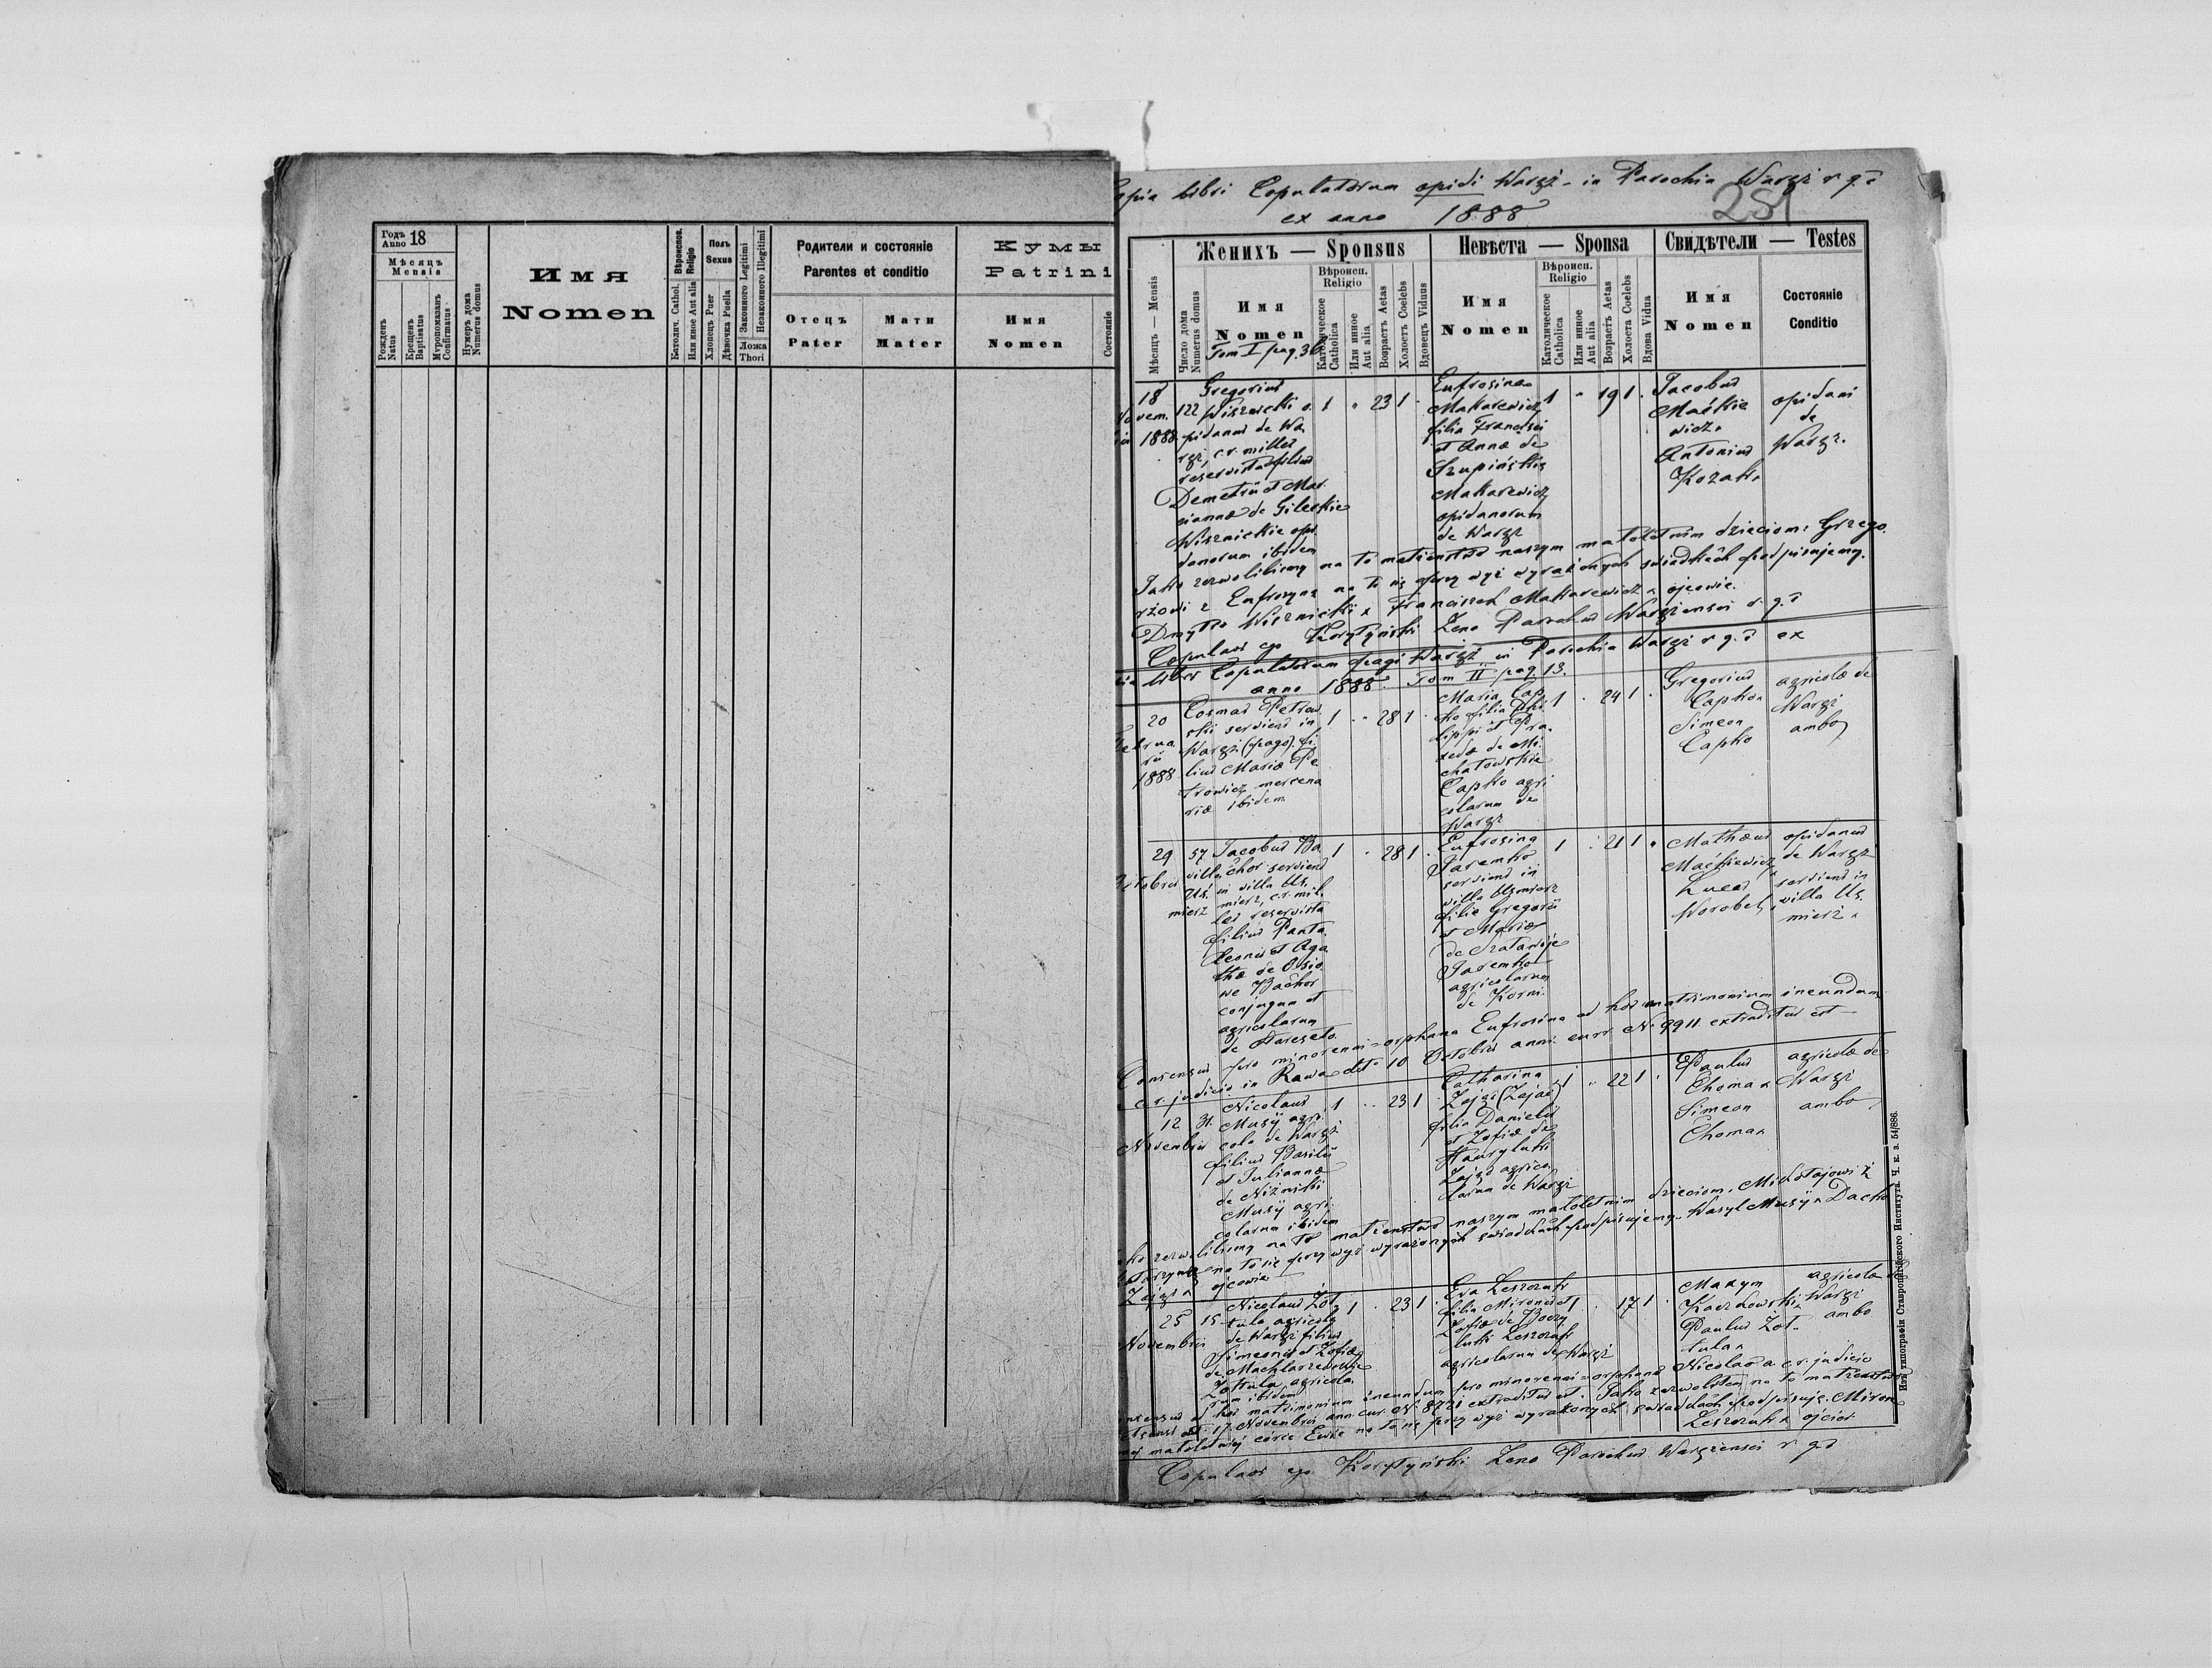 Годъ Anno 18
Мѣсяцъ
Mensis
Рожденъ Natus
Крещенъ Baptisatus
Мѵропомазанъ Confirmatus
Нумеръ дома Numerus domus
Имя
Nomen
Вѣроиспов. Religio
Католич. Cathol.
Или иное Aut alia
Полъ
Sexus
Хлопецъ Puer
Дѣвочка Puella
Законного Legitimi
Незаконного Illegitimi
Ложа
Thori
Родители и состояніе
Parentes et conditio
Отецъ
Pater
Мати
Mater
Кумы
Patrini
Имя
Nomen
Состояніе
Copia libri Copulatorum opidi Waręż in Parochia Waręż r. g. c.
ex anno 1888
251
Женихъ — Sponsus
Невѣста — Sponsa
Свидѣтели — Testes
Мѣсяцъ — Mensis
Число дома
Numerus domus
Имя
Nomen
Tom I pag. 36
Вѣроисп.
Religio
Католическое
Catholica
Или инное
Aut alia
Возрастъ Aetas
Холостъ Coelebs
Вдовецъ Viduus
Имя
Nomen
Вѣроисп.
Religio
Католическое
Catholica
Или инное
Aut alia
Возрастъ Aetas
Холоста Coelebs
Вдова Vidua
Имя
Nomen
Состояніе
Conditio
18
vem.
1888
122
Gregorius
Wisznicki o
pidanus de Wa
ręż, c.r. miles
reservista filius
Demetrii et Mar
iannae de Gilewkie
Wisznickie opi
danorum ibidem
1 " 23 1
Eufrosina
Makarewicz
filia Francisci
et Annae de
Szupińskie
Makarewicz
opidanorum
de Waręż
1 " 19 1
Jacobus
Maćkie
wicz
Antonius
Kozak
opidani
de
Waręż.
Jako zezwoliliśmy na to małżeństwo naszym małoletnim dzieciom: Grzego
rzowi z Eufrozyną na to się przy wyż wyrażonych świadkach podpisujemy.
Dmytro Wisznicki Franciszek Makarewicz ojcowie.
Copulavi ego Korytyński Zeno Parochus Warężensis r. g. c.
liber Copulatorum pagi Waręż in Parochia Waręż r. g. c. ex
anno 1888. Tom II pag. 13.
20
1888
Cosmas Petrow
ski serviens in
Waręż (pago) fi
lius Mariae Pe
trowicz mercena
riae ibidem
1 " 28 1
Maria Cap
ko filia Phi
lippi et Pra
xedae de Mi
chałowskie
Capko agri
colarum de
Waręż
1 " 24 1
Gregorius
Capko
Simeon
Capko
agricolae de
Waręż
ambo
29
57
villa
Uś
mierz
Jacobus Ba
chor serviens
in villa Uś
mierz, c.r. mi
les reservista
filius Panta
leonis et Aga
thae de
Bachor
conjugum et
agricolarum
de
1 " 28 1
Eufrosina
Jaremko
serviens in
villa Uśmierz
filia Gregorii
et Mariae
de
Jaremko
agricolarum
de Korni
1 " 21 1
Mathaeus
Maćkiewicz
Lucas
Worobel
opidanus
de Waręż
serviens in
villa Uś
mierz
Consensus pro minorenni orphana Eufrosina ad hoc matrimonium ineundum
a c.r. judicio in Rawa ddto 10 Octobris anni curr. N 9911 extraditus est
12
Novembris
31
Nicolaus
Musij agri
cola de Waręż
filius Basilii
et Juliannae
de Niżnicki
Musij agri
colarum ibidem
1 " 23 1
Catharina
Zając (Zajac)
filia Danielis
et Zofiae de
Hawryluki
Zając agrico
larum de Waręż
1 " 22 1
Paulus
Choma
Simeon
Choma
agricolae de
Waręż
ambo
zezwoliliśmy na to małżeństwo naszym małoletnim dzieciom. Mikołajowi z
Katarzyną na to się przy wyż wyrażonych świadkach podpisujemy. Wasyl Musij Dacko
Zając ojcowie
25
Novembris
15
Nicolaus Żoł
tula agricola
de Waręż filius
Simeonis et Zofiae
de
Żołtula agricola
rum ibidem
1 " 23 1
Eva Leszczuk
filia Mironis et
Zofiae de
Leszczuk
agricolarum de Waręż
1 " 17 1
Maxym
Kaczkowski
Paulus Żoł
tula
agricolae de
Waręż
ambo
ad hoc matrimonium ineundum pro minorenni orphano Nicolao a c.r. judicio
17 Novembris ann. cur. N 8721 extraditus est. Jako zezwoliłem na to małżeństwo
mej małoletniej córce Ewie na to się przy wyż wyrażonych świadkach podpisuję. Miron
Leszczuk ojciec.
Copulavi ego Korytyński Zeno Parochus Warężensis r. g. c.
Изъ типографіи Ставропигійского Института. Ч. к. з. 54/886.